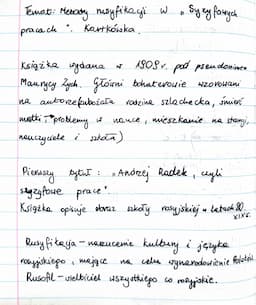 Temat: Metody rusyfikacji w „Syzyfowych
pracach". Kartkówka.
Książka wydana w 1909 r. pod pseudonimem
Maurycy Zych. Główni bohaterowie wzorowani
na autorze (uboga rodzina szlachecka, śmierć
matki, problemy w nauce, mieszkanie na stancji,
nauczyciele i szkoła)
Pierwszy tytuł: „Andrzej Radek, czyli
syzyfowe prace".
Książka opisuje obraz szkoły rosyjskiej w latach 80.
XIX w.
Rusyfikacja – narzucenie kultury i języka
rosyjskiego, mające na celu wynarodowienie Polaków.
Rusofil – wielbiciel wszystkiego co rosyjskie.